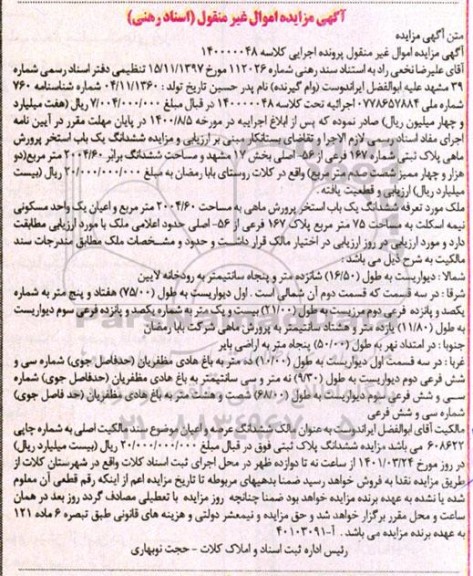 آگهی مزایده اموال غیر منقول (اسناد رهنی)
متن آگهی مزایده
آگهی مزایده اموال غیر منقول پرونده اجرایی کلاسه ۱۴۰۰۰۰۰۴۸
آقای علیرضا نخعی راد به استناد سند رهنی شماره ۱۱۲۰۲۶ مورخ ۱۵/۱۱/۱۳۹۷ تنظیمی دفتر اسناد رسمی شماره
۳۹ مشهد علیه ابوالفضل ایراندوست (وام گیرنده) نام پدر حسین تاریخ تولد : ۰۴/۱۱/۱۳۶۰ شماره شناسنامه ۷۶۰
شماره ملی ۰۷۷۸۶۵۷۸۸۴ اجرائیه تحت کلاسه ۱۴۰۰۰۰۰۴۸ در قبال مبلغ ۷/۰۰۴/۰۰۰/۰۰۰ ریال (هفت میلیارد
و چهار میلیون ریال) صادر نموده که پس از ابلاغ اجراییه در مورخه ۱۴۰۰/۸/۵ در پایان مهلت مقرر در آیین نامه
اجرای مفاد اسناد رسمی لازم الاجرا و تقاضای بستانکار مبنی بر ارزیابی و مزایده ششدانگ یک باب استخر پرورش
ماهی پلاک ثبتی شماره ۱۶۷ فرعی از ۵۶- اصلی بخش ۱۷ مشهد و مساحت ششدانگ برابر ۲۰۰۴/۶۰ متر مربع(دو
هزار و چهار ممیز شصت صدم مترمربع) واقع در کلات روستای بابا رمضان به مبلغ ۲۰/۰۰۰/۰۰۰/۰۰۰ ریال (بیست
میلیارد ریال) ارزیابی و قطعیت یافته .
ملک مورد تعرفه ششدانگ یک باب استخر پرورش ماهی به مساحت ۲۰۰۴/۶۰ متر مربع و اعیان یک واحد مسکونی
نیمه اسکلت به مساحت ۷۵ متر مربع پلاک ۱۶۷ فرعی از ۵۶- اصلی حدود اعلامی ملک با مورد ارزیابی مطابقت
دارد و مورد ارزیابی در روز ارزیابی در اختیار مالک قرار داشت و حدود و مشخصات ملک مطابق مندرجات سند
مالکیت به شرح ذیل می باشد :
شمالا : دیواریست به طول (۱۶/۵۰) شانزده متر و پنجاه سانتیمتر به رودخانه لایین
شرقا : در سه قسمت که قسمت دوم آن شمالی است . اول دیواریست به طول (۷۵/۰۰) هفتاد و پنج متر به شماره
یکصد و پانزده فرعی دوم مرزیست به طول (۲۱/۰۰) بیست و یک متر به شماره یکصد و پانزده فرعی سوم دیواریست
به طول (۱۱/۸۰) یازده متر و هشتاد سانتیمتر به پرورش ماهی شرکت بابا رمضان
جنوبا : در امتداد نهر به طول (۵۰/۰۰) پنجاه متر به اراضی بایر
غربا : در سه قسمت اول دیواریست به طول (۱۰/۰۰) ده متر به باغ هادی مظفریان (حدفاصل جوی) شماره سی و
شش فرعی دوم دیواریست به طول (۹/۳۰) نه متر و سی سانتیمتر به باغ هادی مظفریان (حدفاصل جوی) شماره
سی و شش فرعی سوم دیواریست به طول (۶۸/۰۰) شصت و هشت متر به باغ هادی مظفریان (حد فاصل جوی)
شماره سی و شش فرعی
مالکیت آقای ابوالفضل ایراندوست به عنوان مالک ششدانگ عرصه و اعیان موضوع سند مالکیت اصلی به شماره چاپی
۶۰۸۶۲۲ می باشد مزایده ششدانگ پلاک ثبتی فوق در قبال مبلغ ۲۰/۰۰۰/۰۰۰/۰۰۰ ریال (بیست میلیارد ریال)
در روز مورخ ۱۴۰۱/۰۳/۲۴ از ساعت نه تا دوازده ظهر در محل اجرای ثبت اسناد کلات واقع در شهرستان کلات از
طریق مزایده نقدا به فروش خواهد رسید ضمنا بدهیهای مربوطه تا تاریخ مزایده اعم از اینکه رقم قطعی آن معلوم
شده یا نشده به عهده برنده مزایده خواهد بود ضمنا چنانچه روز مزایده با تعطیلی مصادف گردد روز بعد در همان
ساعت و محل مقرر برگزار خواهد شد و حق مزایده و نیمعشر دولتی و هزینه های قانونی طبق تبصره ۶ ماده ۱۲۱
به عهده برنده مزایده می باشد . آ-۴۰۱۰۳۰۹۱
رئیس اداره ثبت اسناد و املاک کلات - حجت نوبهاری